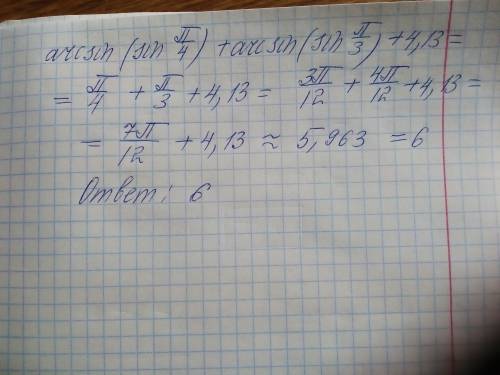 arcsin(sin π/4) + arcsin(sin π/3) + 4,13 =
= π/4 + π/3 + 4,13 = 3π/12 + 4π/12 + 4,13 =
= 7π/12 + 4,13 ≈ 5,963 = 6
Ответ: 6